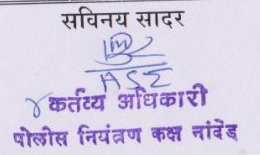 सविनय सादर
ASI
कर्तव्य अधिकारी
पोलीस नियंत्रण कक्ष नांदेड